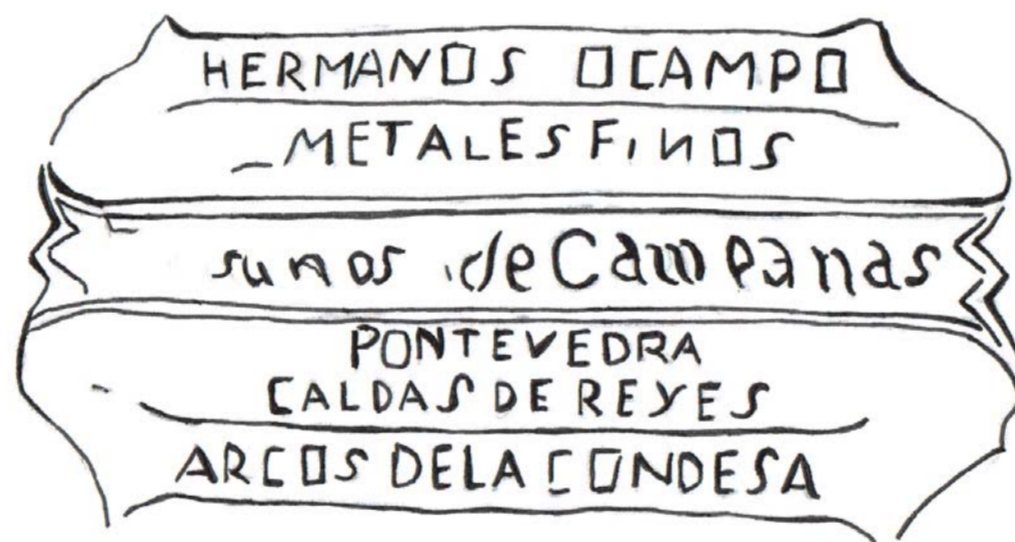 HERMANOS OCAMPO
METALES FINOS
sunos de Campanas
PONTEVEDRA
CALDAS DE REYES
ARCOS DE LA CONDESA